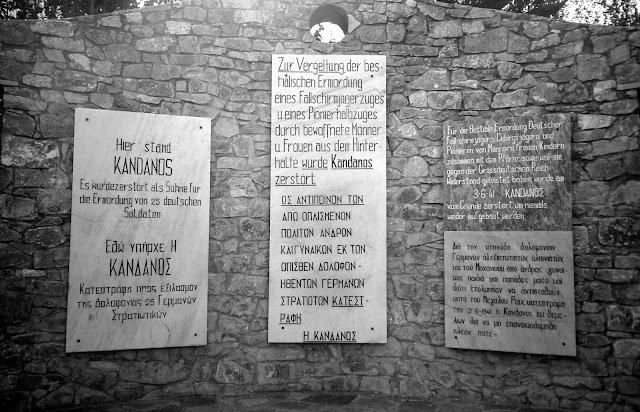 Hier stand
KANDANOS
Es wurdezerstort als Sühne fur
die Ermordung von 25 deutschen
Soldaten
Εδώ υπήρχε Η
ΚΑΝΔΑΝΟΣ
Κατεστράφη προς εξιλασμόν
της δολοφονίας 25 Γερμανών
Στρατιωτικών
Zur Vergeltung der bes-
tialischen Ermordung
eines Fallschirmjägerzuges
u eines Pionierhalbzuges
durch bewaffnete Männer
u Frauen aus dem Hinter-
halte wurde Kandanos
zerstort.
ΩΣ ΑΝΤΙΠΟΙΝΟΝ ΤΩΝ
ΑΠΟ ΟΠΛΙΣΜΕΝΟΝ
ΠΟΛΙΤΟΝ ΑΝΔΡΟΝ
ΚΑΙ ΓΥΝΑΙΚΟΝ ΕΚ ΤΟΝ
ΟΠΙΣΘΕΝ ΔΟΛΟΦΟΝ-
ΗΘΕΝΤΟΝ ΓΕΡΜΑΝΟΝ
ΣΤΡΑΤΙΟΤΟΝ ΚΑΤΕΣΤ-
ΡΑΦΗ
Η ΚΑΝΔΑΝΟΣ
Für die Bestiale Ermordung Deutscher
Fallschirmjägern, Gebirgsjägern und
Pionieren von Männern Frauen Kindern
zusammen mit dem Pförer, sowie weil sie
gegen der Grossdeutschen Reich
Widerstand geleistet haben wurde am
3·6·41 KANDANOS
vom Grunde zerstort um niemals
wieder aufgebaut werden.
Δια την κτηνώδη δολοφονίαν
Γερμανών αλεξιπτωτιστών, αλπινιστών,
και του Μηχανικού από άνδρας γυναί-
κας, παιδιά και παπάδες μαζύ και
διότι ετόλμησαν να αντισταθούν
κατά του Μεγάλου Ράιχ, κατεστράφη
την 3·6·1941 η Κάνδανος εκ θεμε-
λίων δια να μη επανοικοδομηθή
πλέον ποτέ-